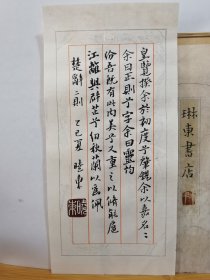 琳東書店
皇覽揆余於初度兮肇錫余以嘉名〻
余曰正則兮字余曰靈均
紛吾既有此內美兮又重之以脩能扈
江蘺與辟芷兮紉秋蘭以為佩
楚辭二則 乙巳夏 曉東